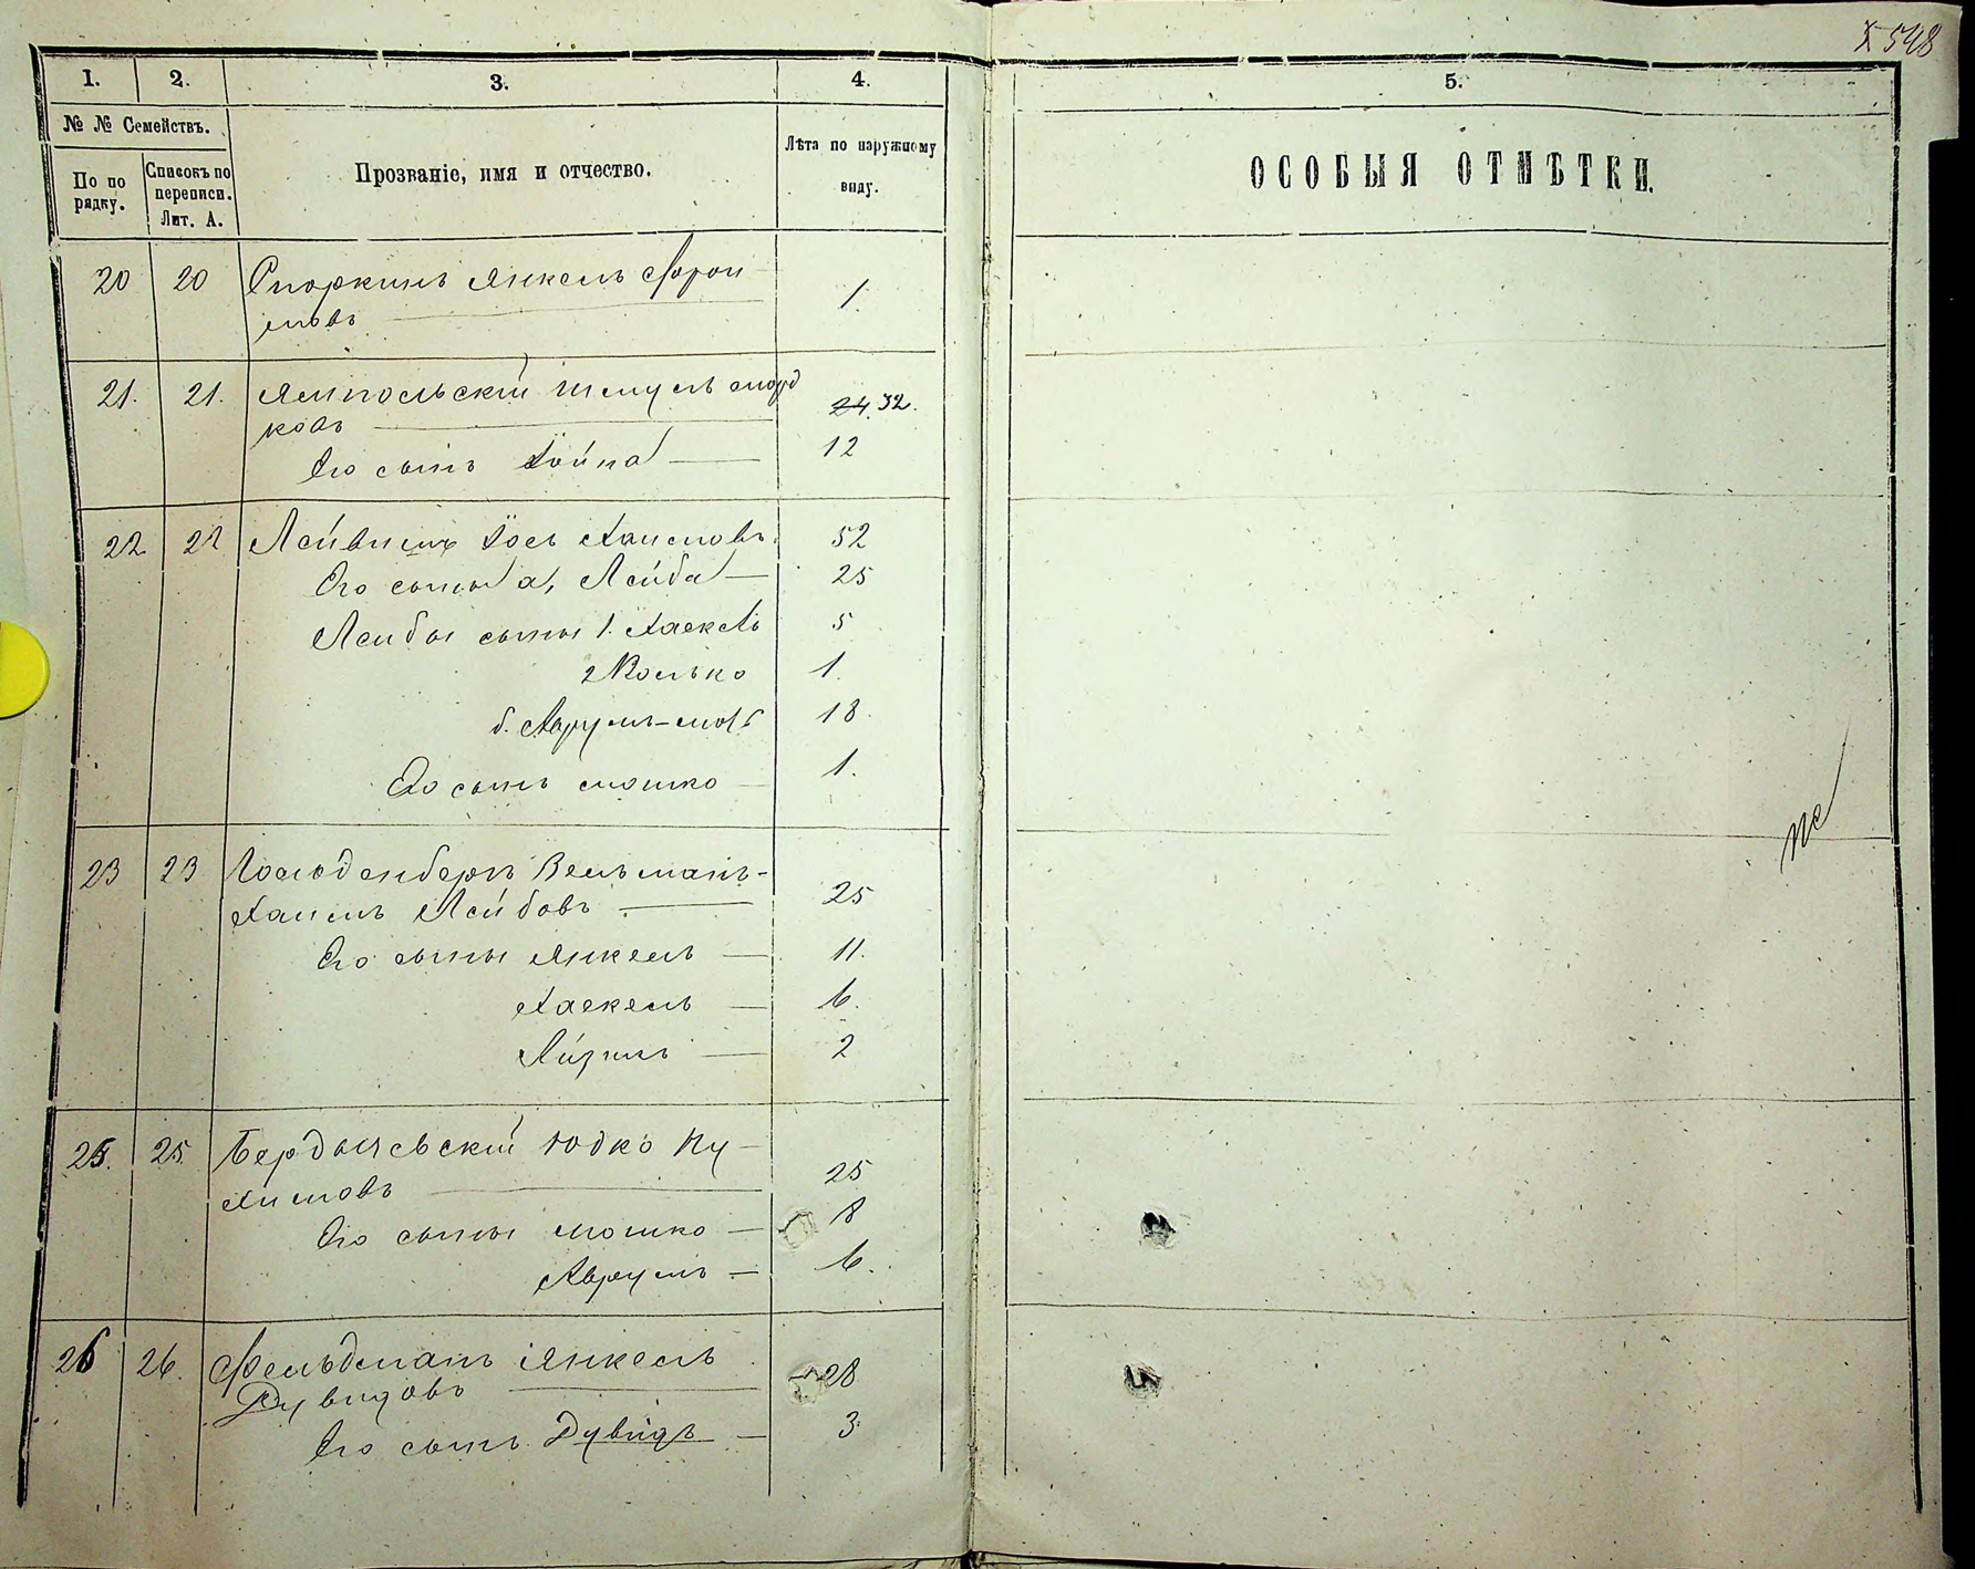 548
1. 2. 3. 4. 5.
№ № Семействъ.
По по рядку.
Списокъ по переписи. Лит. А.
Прозваніе, имя и отчество.
Лѣта по наружному виду.
ОСОБЫЯ ОТМѢТКИ.
20 20 Споркинъ Янкель Фрои
мовъ 1.
21. 21. Ямпольскій Шмуль Морд
ковъ 24. 32.
Его сынъ Хойна 12
22 22 Хаимовъ. 52
Его сыновья а, Лейба 25
Лейбы сыны 1. Хаскель 5
2 Волько 1.
б. Аврумъ- 18.
Его сынъ Мошко 1.
23 23 Гольденбергъ Вельманъ-
Хаимъ Лейбовъ 25
Его сыны Янкель 11.
Хаскель 6.
2
25. 25. Бердычевскій Юдко Ну
химовъ 25
Его сыны Мошко 8
Аврумъ 6.
26 26. Фельдманъ Янкель
Дувидовъ 28
Его сынъ Дувидъ 3